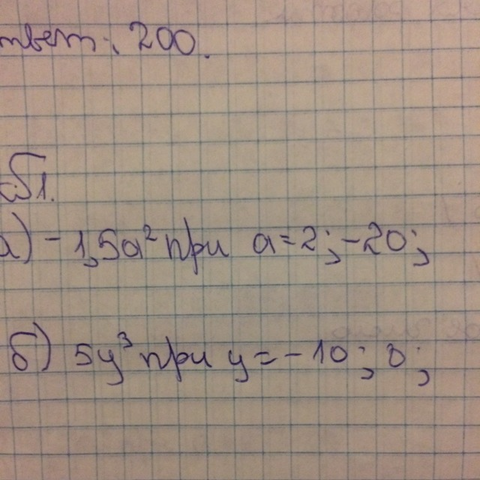 твет: 200.
№1.
а) -1,5a² при a=2; -20;
б) 5y³ при y=-10; 0;